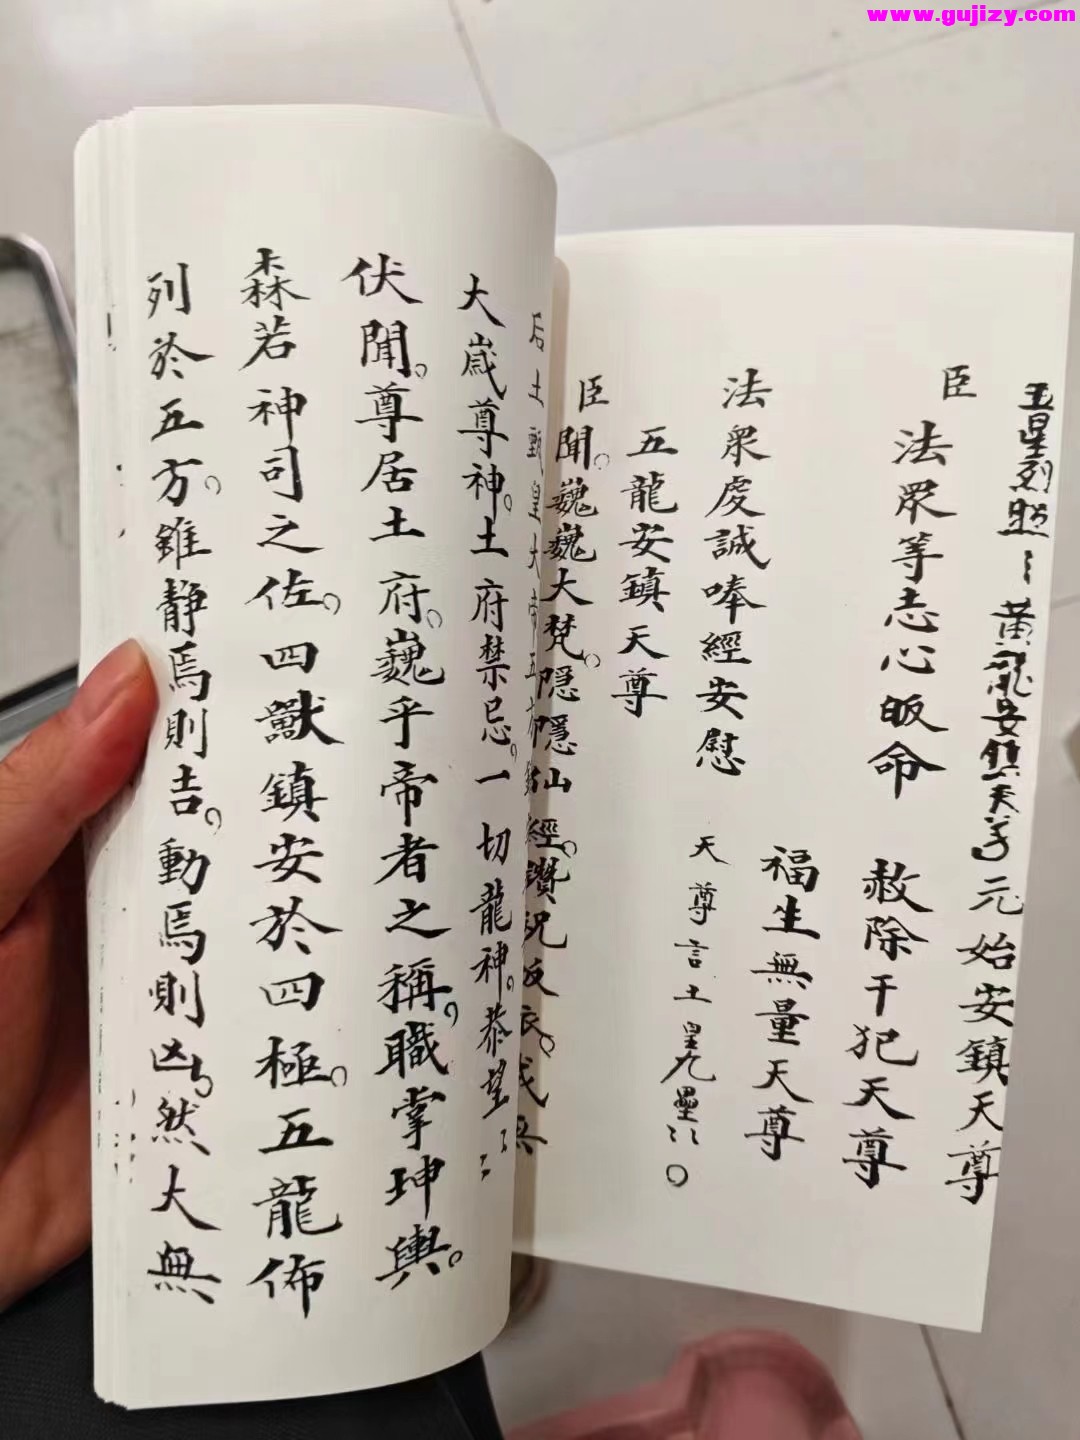 www.gujizy.com
五星列照〻黃龍安鎮天尊元始安鎮天尊
臣
法眾等志心皈命
赦除干犯天尊
福生無量天尊
法眾虔誠唪經安慰
天尊言土皇九壘〻〻〇
五龍安鎮天尊
臣聞。巍巍大梵。隱隱仙經。讚祝反
后土甄皇大帝五方
大歲尊神。土府禁忌。一切龍神。恭望〻〻
伏聞。尊居土府。巍乎帝者之稱。職掌坤輿。
森若神司之佐。四獸鎮安於四極。五龍佈
列於五方。雖静焉則吉。動焉則凶。然大無